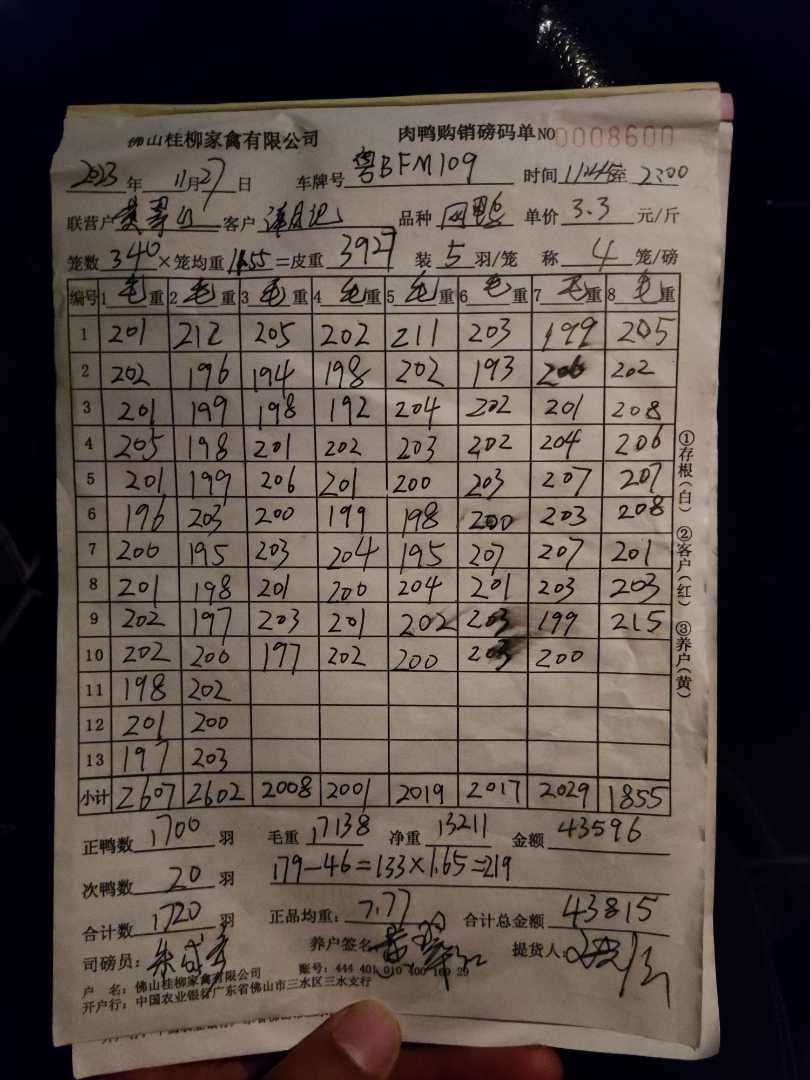 佛山桂柳家禽有限公司 肉鸭购销磅码单 NO 0008600
2023 年 11月27 日 车牌号 粤BFM109 时间 至 2300
联营户 客户 品种 单价 3.3 元/斤
笼数 340 ×笼均重 11.55 =皮重 3927 装 5 羽/笼 称 4 笼/磅
编号 1 毛 重 2 毛 重 3 毛 重 4 毛 重 5 毛 重 6 毛 重 7 毛 重 8 毛 重
1 201 212 205 202 211 203 199 205
2 202 196 194 198 202 193 206 202
3 201 199 198 192 204 202 201 208
4 205 198 201 202 203 202 204 206
5 201 199 206 201 200 203 207 207
6 196 203 200 199 198 200 203 208
7 200 195 203 204 195 207 207 201
8 201 198 201 200 204 201 203 203
9 202 197 203 201 202 203 199 215
10 202 200 197 202 200 203 200
11 198 202
12 201 200
13 197 203
小计 2607 2602 2008 2001 2019 2017 2029 1855
正鸭数 1700 羽 毛重 17138 净重 13211 金额 43596
次鸭数 20 羽 179-46=133×1.65=219
合计数 1720 羽 正品均重: 7.77 合计总金额 43815
司磅员: 养户签名 提货人:
户 名: 佛山桂柳家禽有限公司 账号: 444 401 010 400 160 29
开户行: 中国农业银行广东省佛山市三水区三水支行
①存根(白) ②客户(红) ③养户(黄)